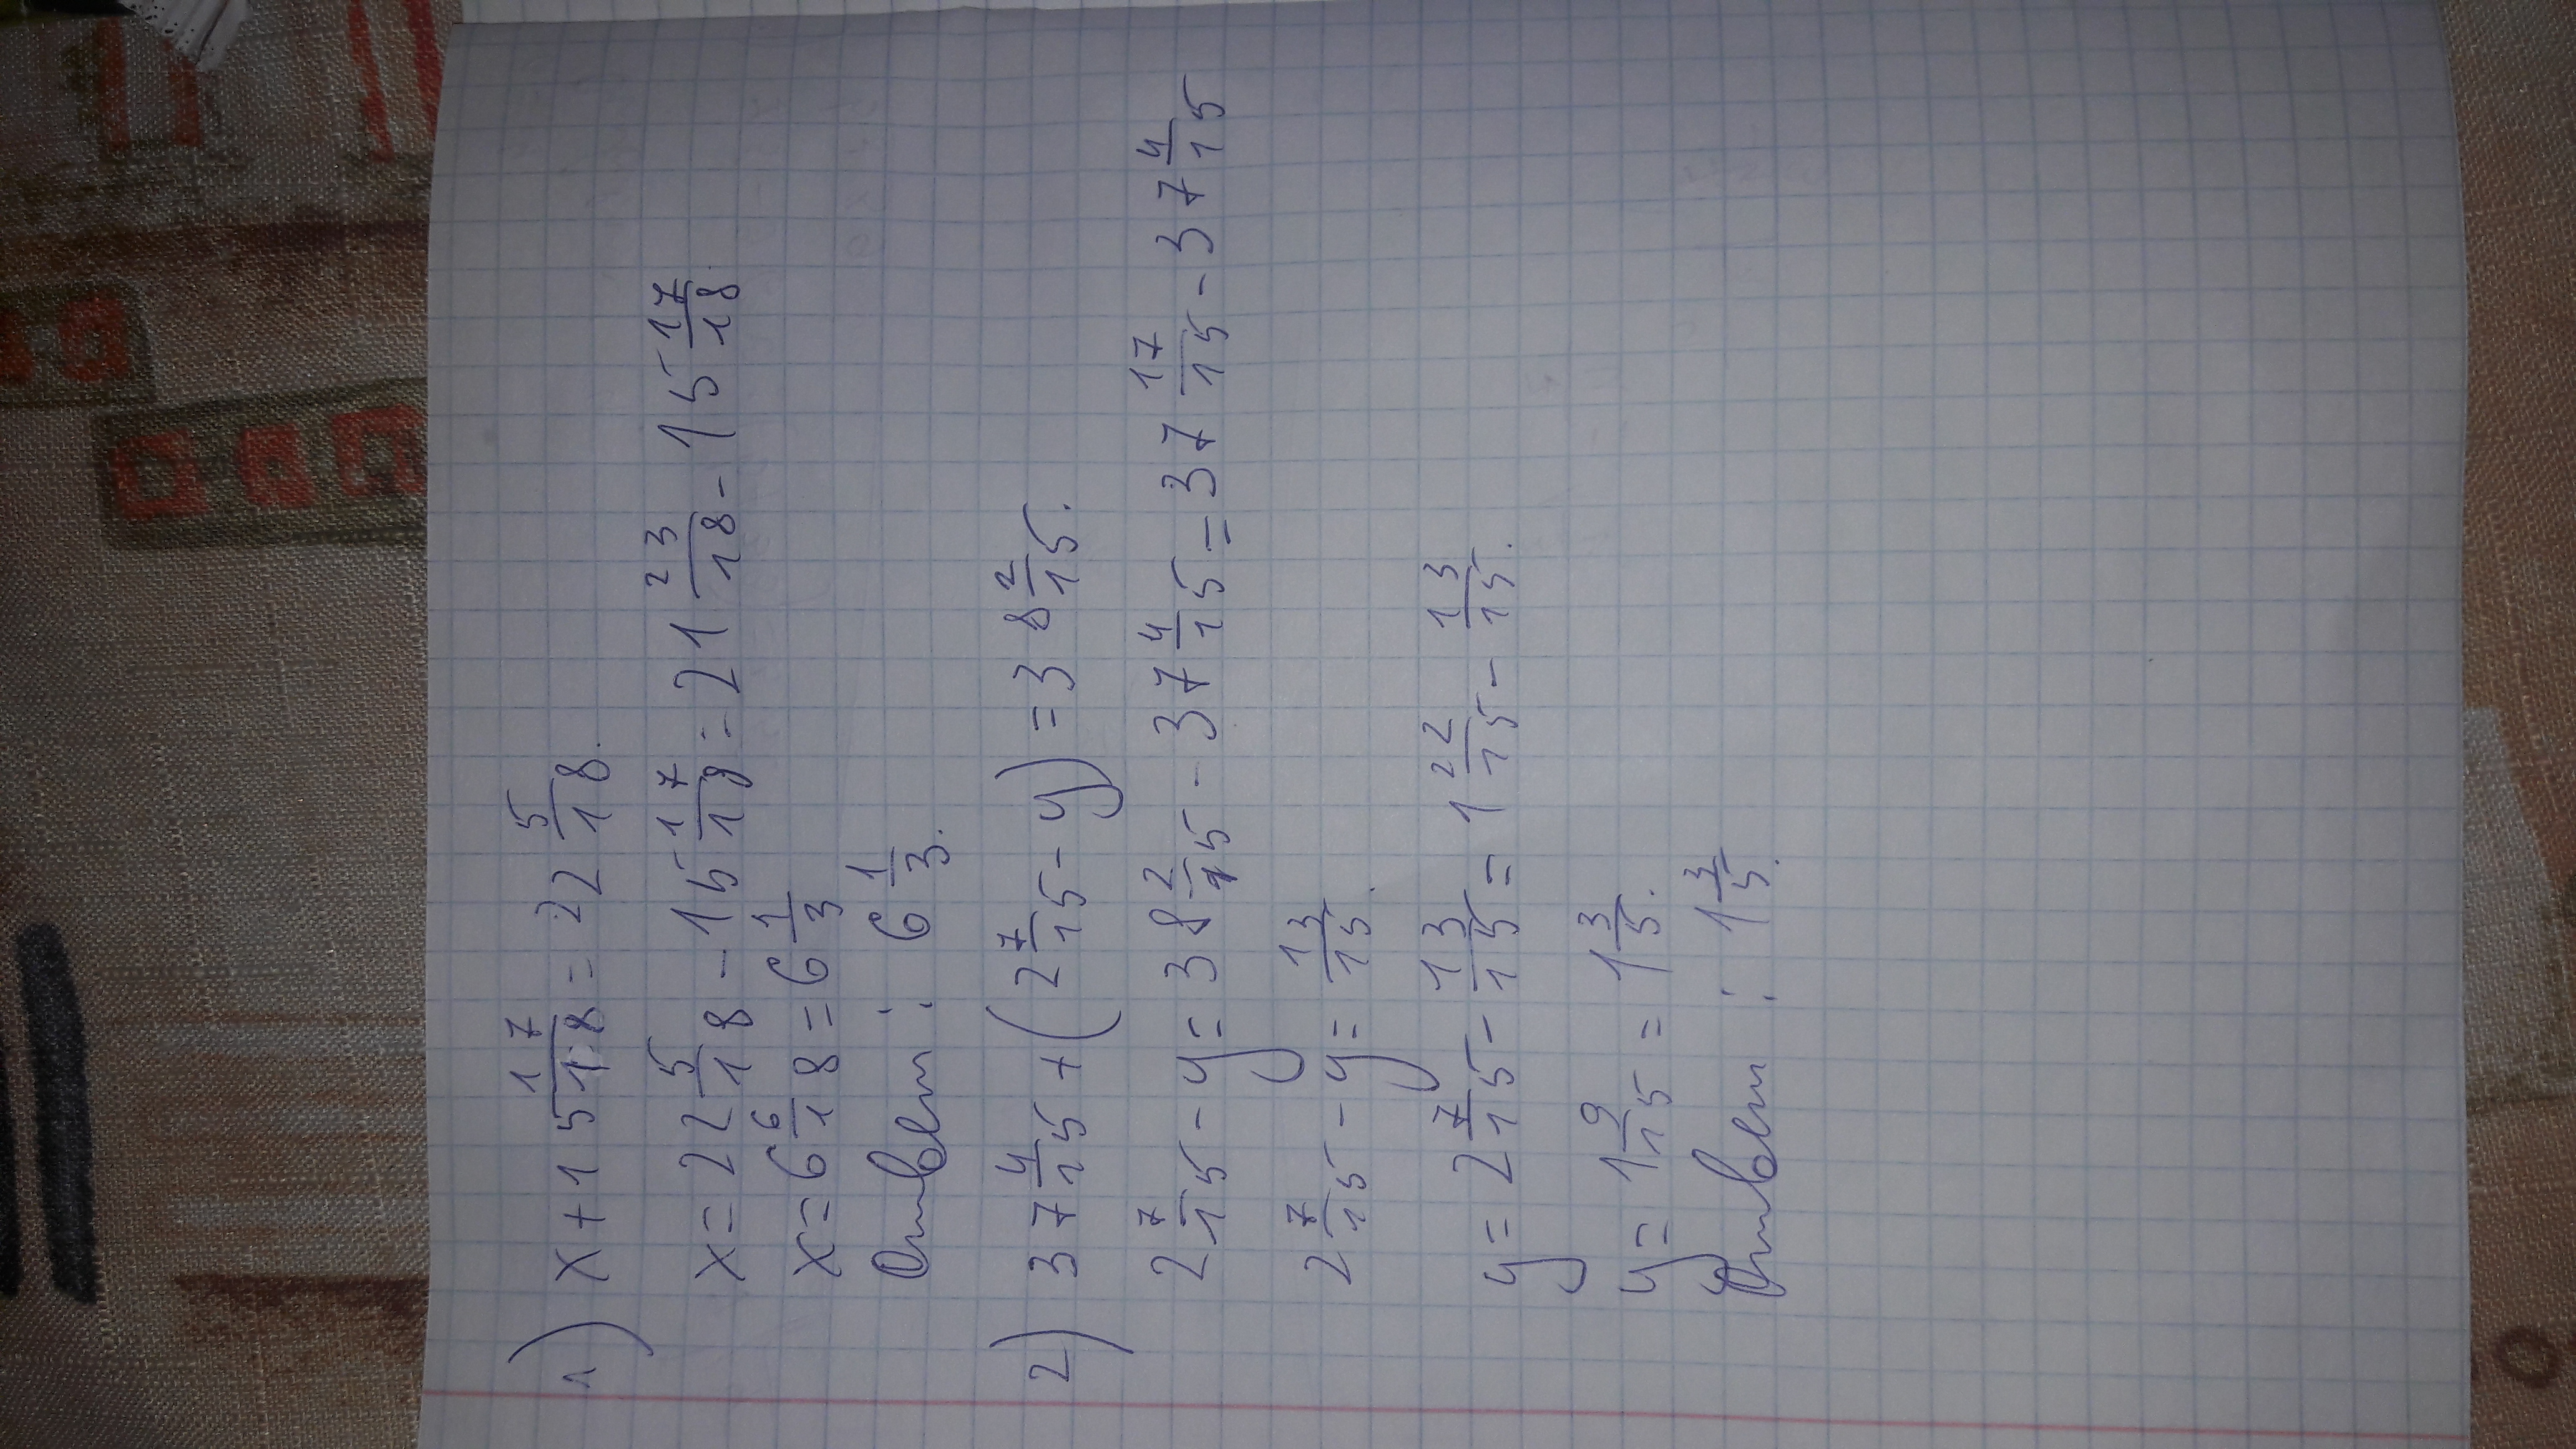 1) x + 15 17/18 = 22 5/18.
x = 22 5/18 - 15 17/18 = 21 23/18 - 15 17/18.
x = 6 6/18 = 6 1/3
Ответ: 6 1/3.
2) 37 4/15 + (2 7/15 - y) = 38 2/15.
2 7/15 - y = 38 2/15 - 37 4/15 = 37 17/15 - 37 4/15
2 7/15 - y = 13/15.
y = 2 7/15 - 13/15 = 1 22/15 - 13/15.
y = 1 9/15 = 1 3/5.
Ответ: 1 3/5.